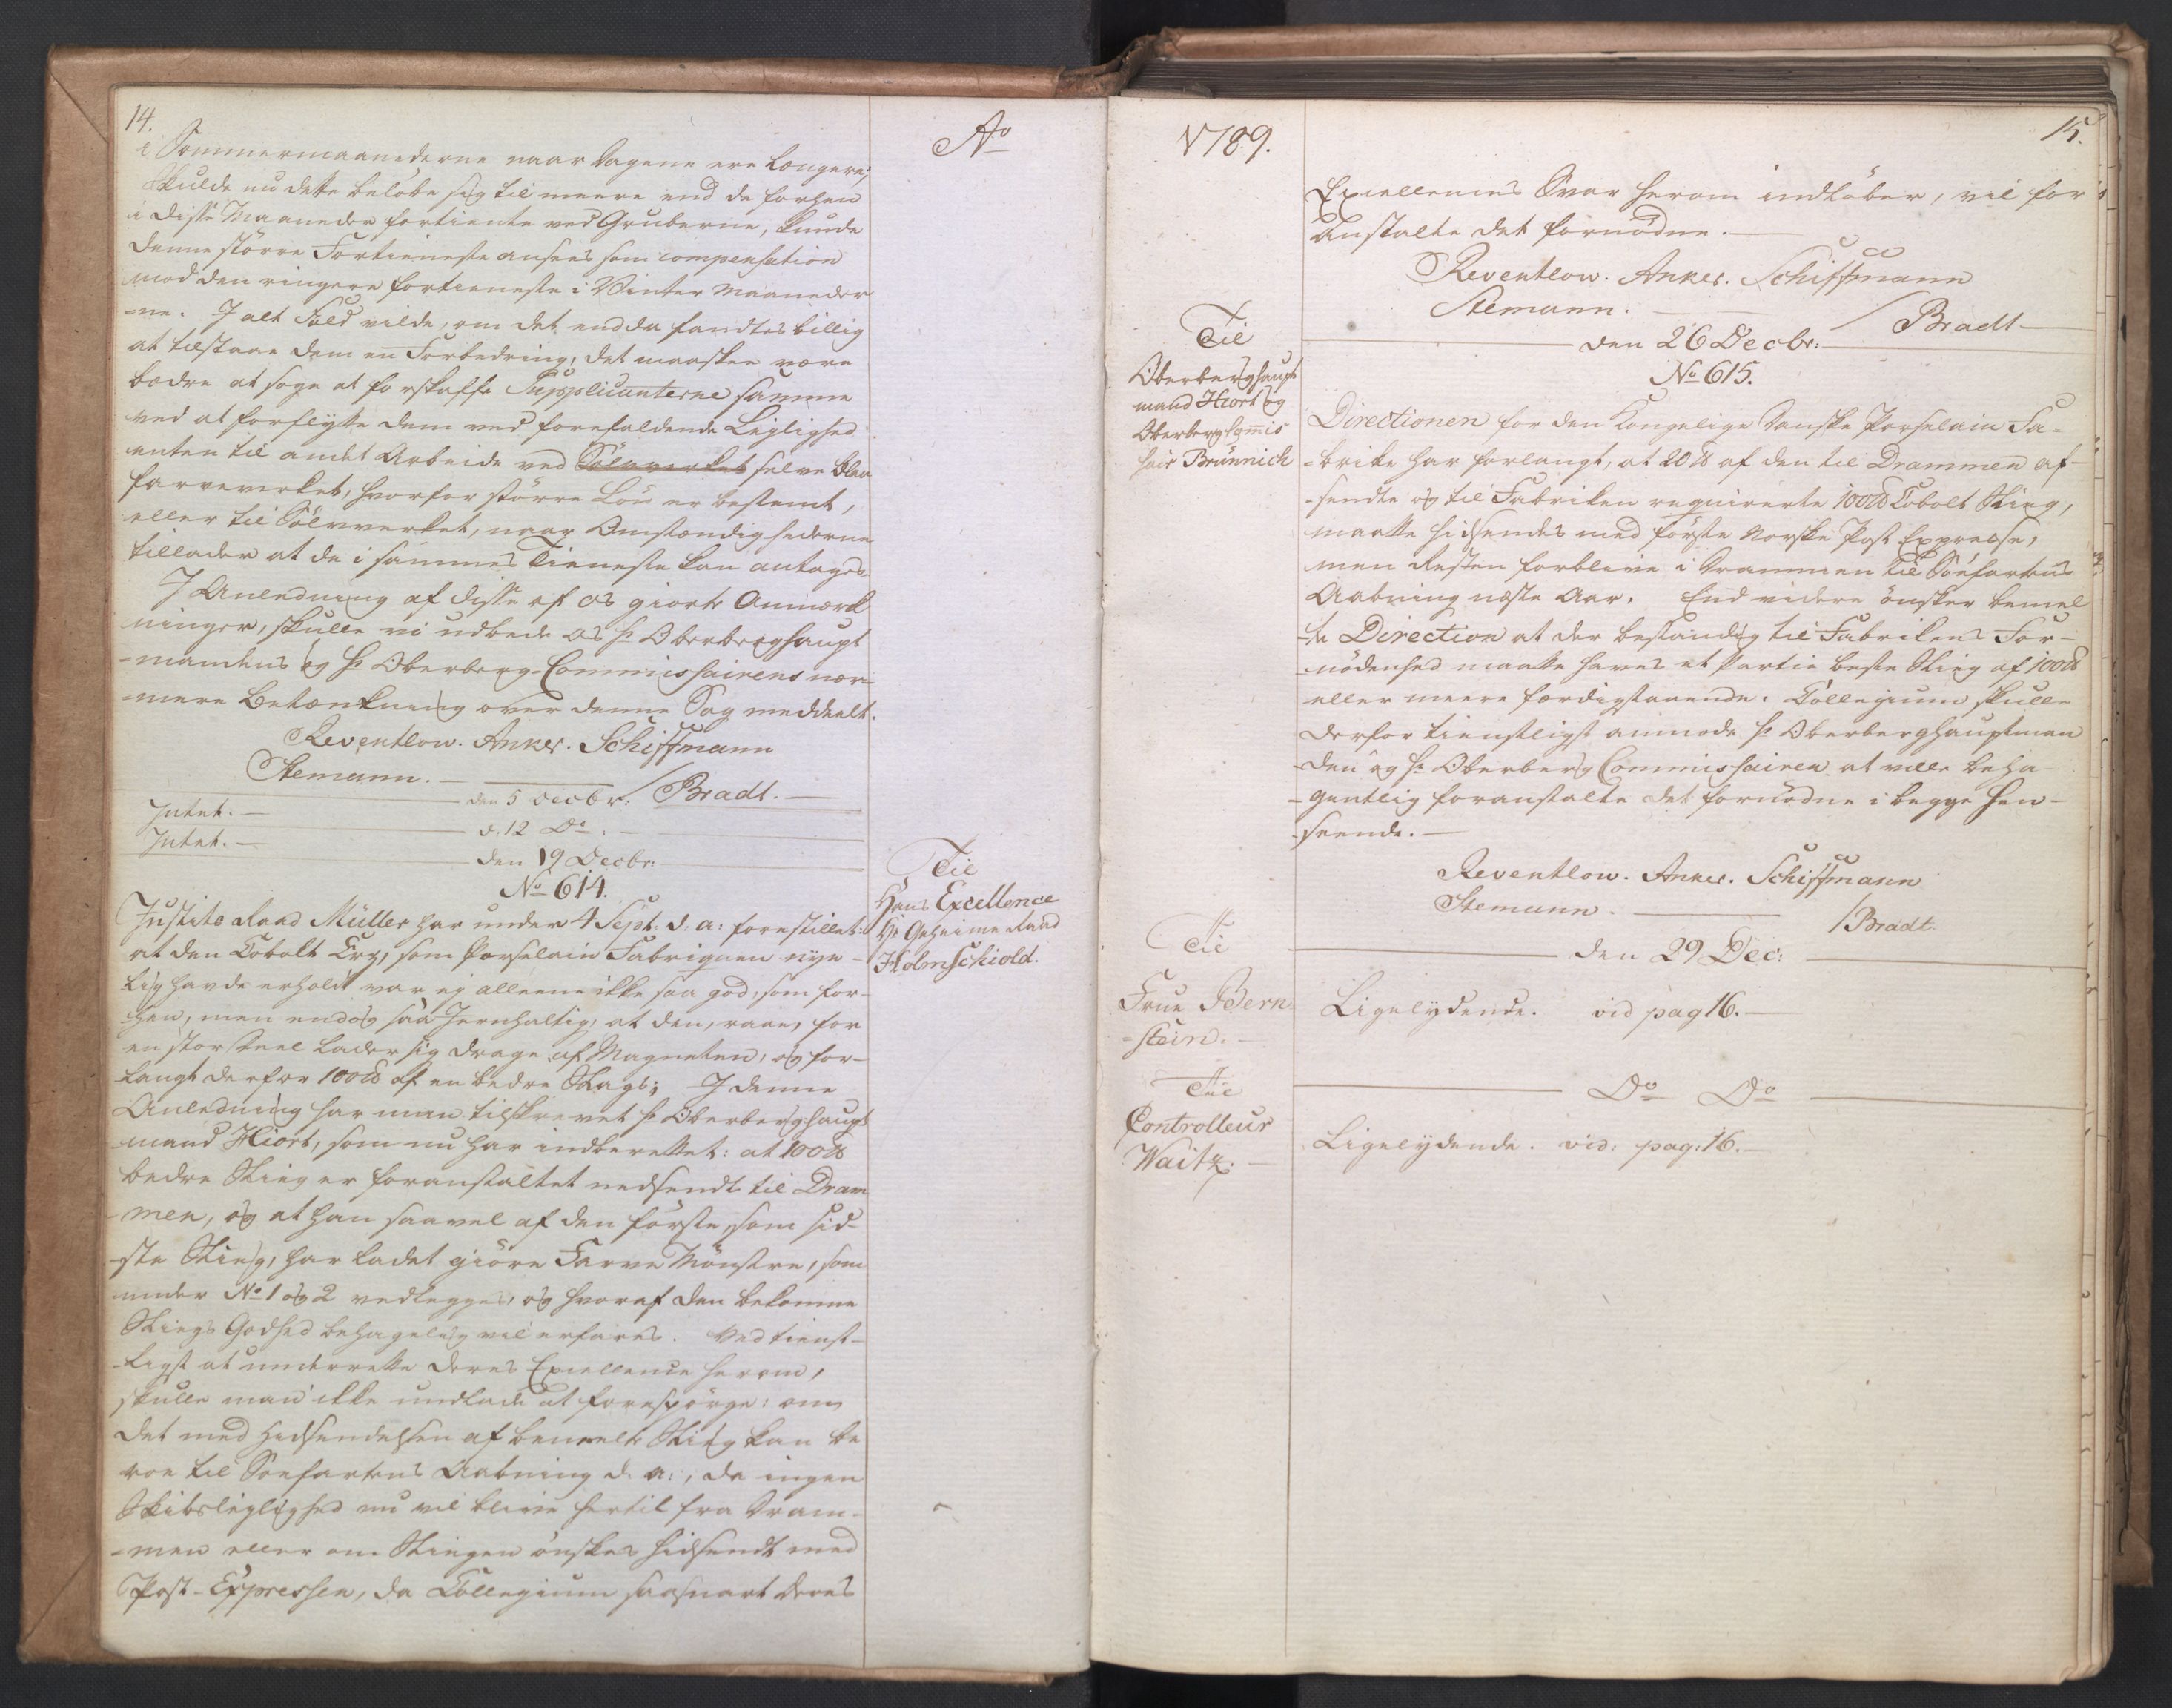 14.
Ao
i Sommermaanederne naar Dagene ere længere;
Skulde nu dette beløbe sig til meere end de forhen
i disse Maaneder fortiente ved Gruberne, kunde
denne større Fortieneste ansees som compensation
mod den ringere fortieneste i Vinter Maaneder
-ne. I alt Fald vilde, om det endda fandtes billig
at tilstaae dem en Forbedring, det maaskee være
bedre at søge at forskaffe Supplicanterne samme
ved at forflytte dem ved forefaldende Leylighed
enten til andet Arbeide ved Sølvverket selve Blaa
farveverket, hvorfor større Løn er bestemt,
eller til Sølvverket, naar Omstændighederne
tillader at de i sammes Tieneste kan antages.
I Anledning af disse af os giorte Anmærk
ninger, skulle vi udbede os Hr Oberberghaupt
-mandens og Hr Oberberg-Commissairens nær-
mere Betænkning over denne Sag meddeelt.
Reventlow. Anker. Schiffmann
Stemann. — /Bradt.
den 5 Decbr:
Intet. —
d. 12 Do.
Intet. —
den 19 Decbr:
No 614.
Til
Hans Excellence
Hr Geheime Raad
Holmschiold.
Justits Raad Müller har under 4 Sept: d: a: forestillet:
at den Cobolt Erz, som Porselain Fabriquen nye-
lig havde erholdt var ej alleene ikke saa god, som for-
hen, men endog saa Jernhaltig, at den, raae, for
en stor Deel lader sig drage af Magneten, og for-
langt derfor 100 ℔ af en bedre Slags; I denne
Anledning har man tilskrevet Hr Oberberghaupt
mand Hiort, som nu har indberettet: at 100 ℔
bedre Slieg er foranstaltet nedsendt til Dram
men, og at han saavel af den første, som sid-
-ste Slieg, har ladet giøre Farve Mønstre, som
under No 1 og 2 vedlegges, og hvoraf den bekomne
Sliegs Godhed behagelig vil erfares. Ved tienst-
-ligst at underrette Deres Excellence herom,
skulle man ikke undlade at forespørge: om
det med Hidsendelsen af bemeldte Slieg kan be
roe til Søefartens Aabning d. a:, da ingen
Skibsleylighed nu vil blive hertil fra Dram-
-men eller om Sliegen ønskes hidsendt med
Post-Expressen, da Collegium saasnart Deres
1789.
15.
Excellences Svar herom indløber, vil for
anstalte det fornødne. —
Reventlow. Anker. Schiffmann
Stemann. — /Bradt
den 26 Decbr:
No 615.
Til
Oberberghaupt
mand Hiort og
Oberbergcomis
sair Brünnich
Directionen for den Kongelige Danske Porselain Fa-
-brike har forlangt, at 20 ℔ af den til Drammen af-
-sendte og til Fabriken requirerte 100 ℔ Cobolt Slieg,
maatte hidsendes med første Norske Post Expresse,
men Resten forblive i Drammen til Søefartens
Aabning næste Aar. End videre ønsker bemel
-te Direction at der bestandig til Fabrikens For-
-nødenhed maatte haves et Partie beste Slieg af 100 ℔
eller meere færdigstaaende. Collegium skulle
derfor tienstligst anmode Hr Oberberghauptman
den og Hr Oberberg Commissairen at ville beha
-gentlig foranstalte det fornødne i begge Hen-
-seende. —
Reventlow. Anker. Schiffmann
Stemann. — /Bradt.
den 29 Dec:
Til
Frue Bern
-stein. —
Ligelydende. vid pag 16. —
Do Do
Til
Controlleur
Waitz. —
Ligelydende. vid: pag: 16. —